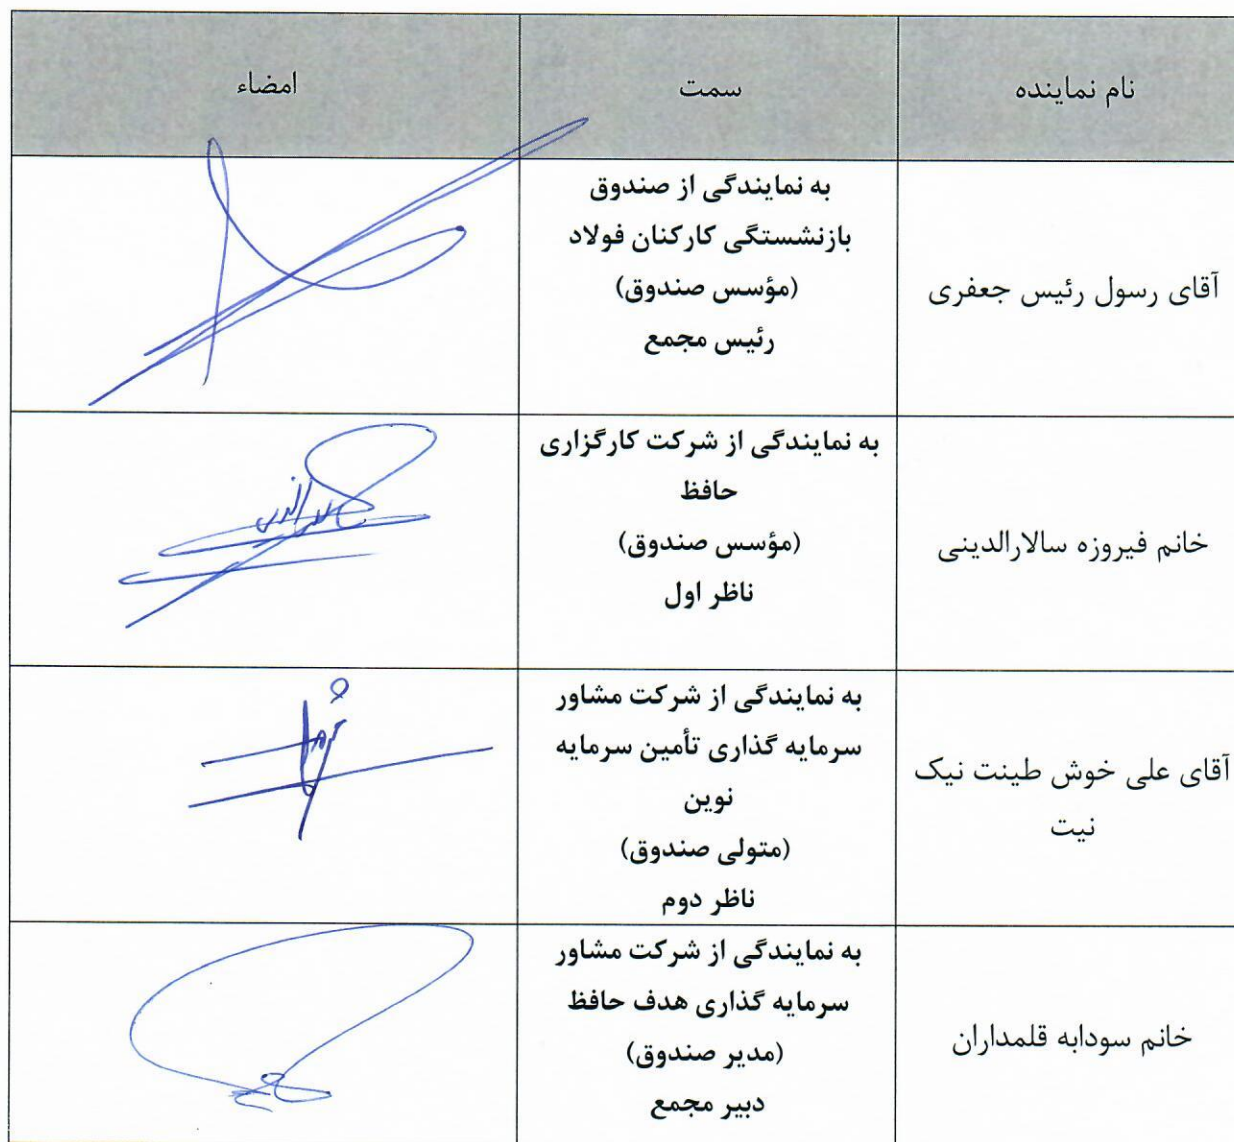 نام نماینده
سمت
امضاء
آقای رسول رئیس جعفری
به نمایندگی از صندوق
بازنشستگی کارکنان فولاد
(مؤسس صندوق)
رئیس مجمع
خانم فیروزه سالارالدینی
به نمایندگی از شرکت کارگزاری
حافظ
(مؤسس صندوق)
ناظر اول
آقای علی خوش طینت نیک
نیت
به نمایندگی از شرکت مشاور
سرمایه گذاری تأمین سرمایه
نوین
(متولی صندوق)
ناظر دوم
خانم سودابه قلمداران
به نمایندگی از شرکت مشاور
سرمایه گذاری هدف حافظ
(مدیر صندوق)
دبیر مجمع